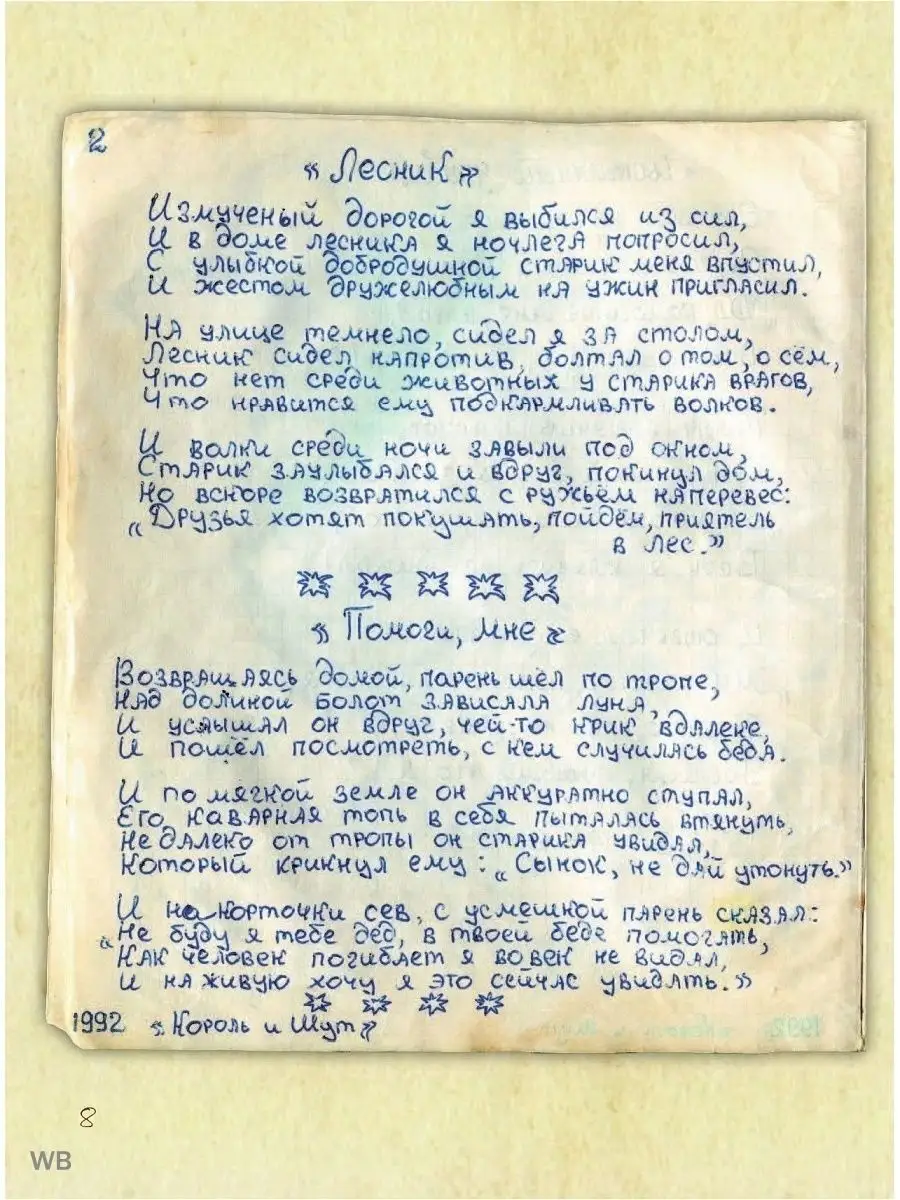 2
«Лесник»
Измученый дорогой я выбился из сил,
И в доме лесника я ночлега попросил,
С улыбкой добродушной старик меня впустил,
И жестом дружелюбным на ужин пригласил.
На улице темнело, сидел я за столом,
Лесник сидел напротив, болтал о том, о сём,
Что нет среди животных у старика врагов,
Что нравится ему подкармливать волков.
И волки среди ночи завыли под окном,
Старик заулыбался и вдруг, покинул дом,
Но вскоре возвратился с ружьём наперевес:
„Друзья хотят покушать, пойдём, приятель
в лес.”
«Помоги, мне»
Возвращаясь домой, парень шёл по тропе,
Над долиной болот зависала луна,
И услышал он вдруг, чей-то крик вдалеке,
И пошёл посмотреть, с кем случилась беда.
И по мягкой земле он аккуратно ступал,
Его каварная топь в себя пыталась втянуть,
Не далеко от тропы он старика увидал,
Который крикнул ему: „Сынок, не дай утонуть.”
И на корточки сев, с усмешкой парень сказал:
„Не буду я тебе дед, в твоей беде помогать,
Как человек погибает я во век не видал,
И на живую хочу я это сейчас увидать.”
1992 «Король и Шут»
8
WB